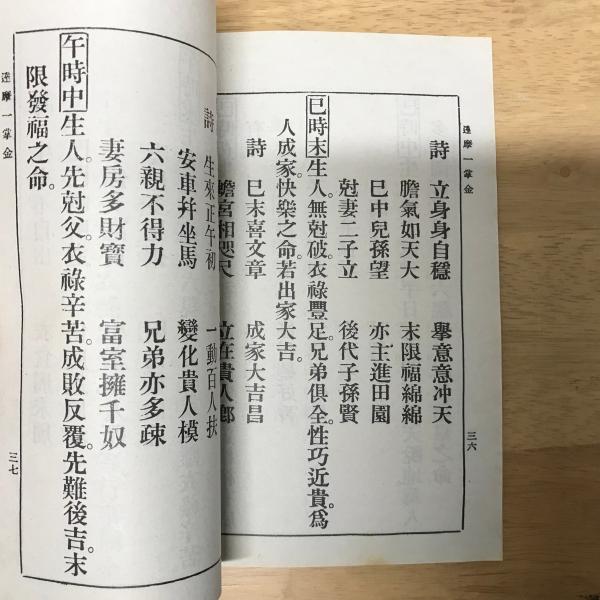 達摩一掌金
詩 立身身自穩 舉意意冲天
膽氣如天大 末限福綿綿
巳中兒孫望 亦主進田園
尅妻二子立 後代子孫賢
巳時末生人。無尅破。衣祿豐足。兄弟俱全。性巧近貴。爲
人成家快樂之命。若出家大吉。
詩 巳末喜文章 成家大吉昌
蟾宮相咫尺 立在貴人郎
三六
詩 生來正午初 一動百人扶
安車幷坐馬 變化貴人模
六親不得力 兄弟亦多疎
妻房多財寶 富室擁千奴
午時中生人。先尅父。衣祿辛苦。成敗反覆。先難後吉。末
限發福之命。
達摩一掌金
三七